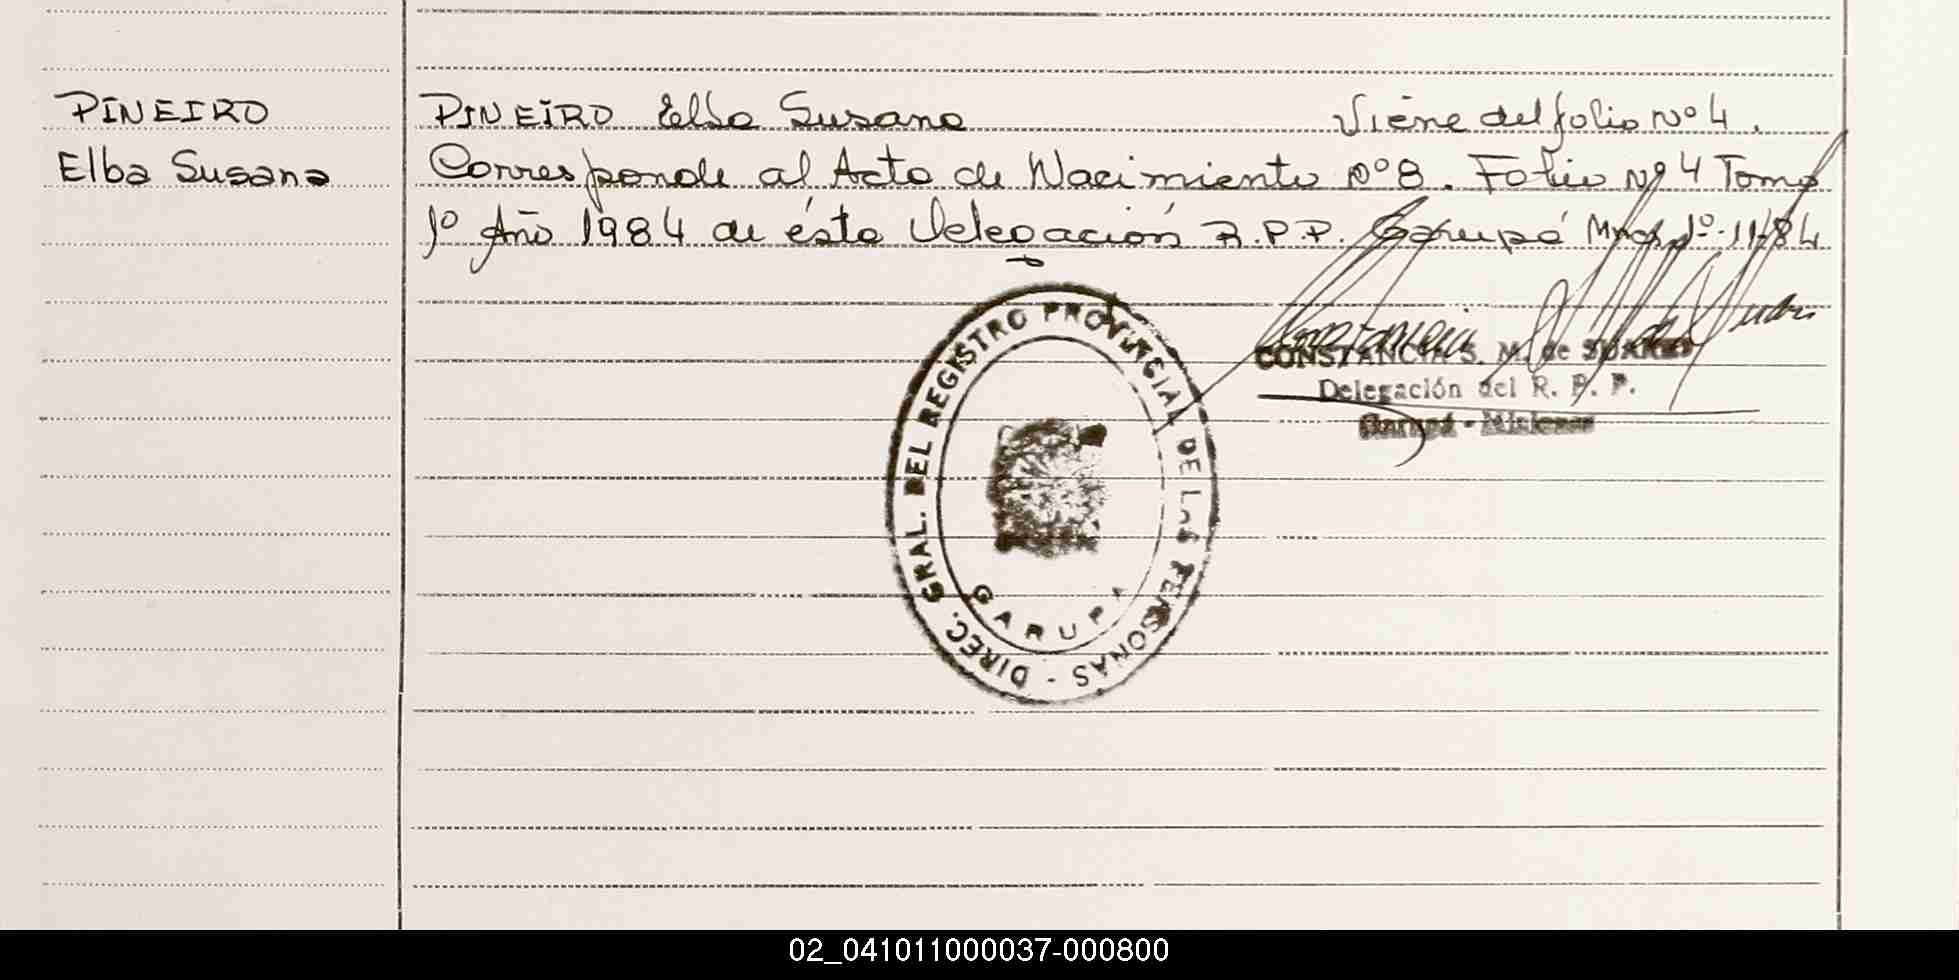 PINEIRO
Elba Susana
PINEIRO Elba Susana Viene del folio Nº 4.
Corresponde al Acta de Nacimiento Nº 8. Folio Nº 4 Tomo
1º Año 1984 de ésta Delegación R.P.P. Garupá Mnes, 1º-11-84
DIREC. GRAL. DEL REGISTRO PROVINCIAL DE LAS PERSONAS -
GARUPA
CONSTANCIA S. M. de SUAREZ
Delegación del R. P. P.
Garupá - Misiones
02_041011000037-000800